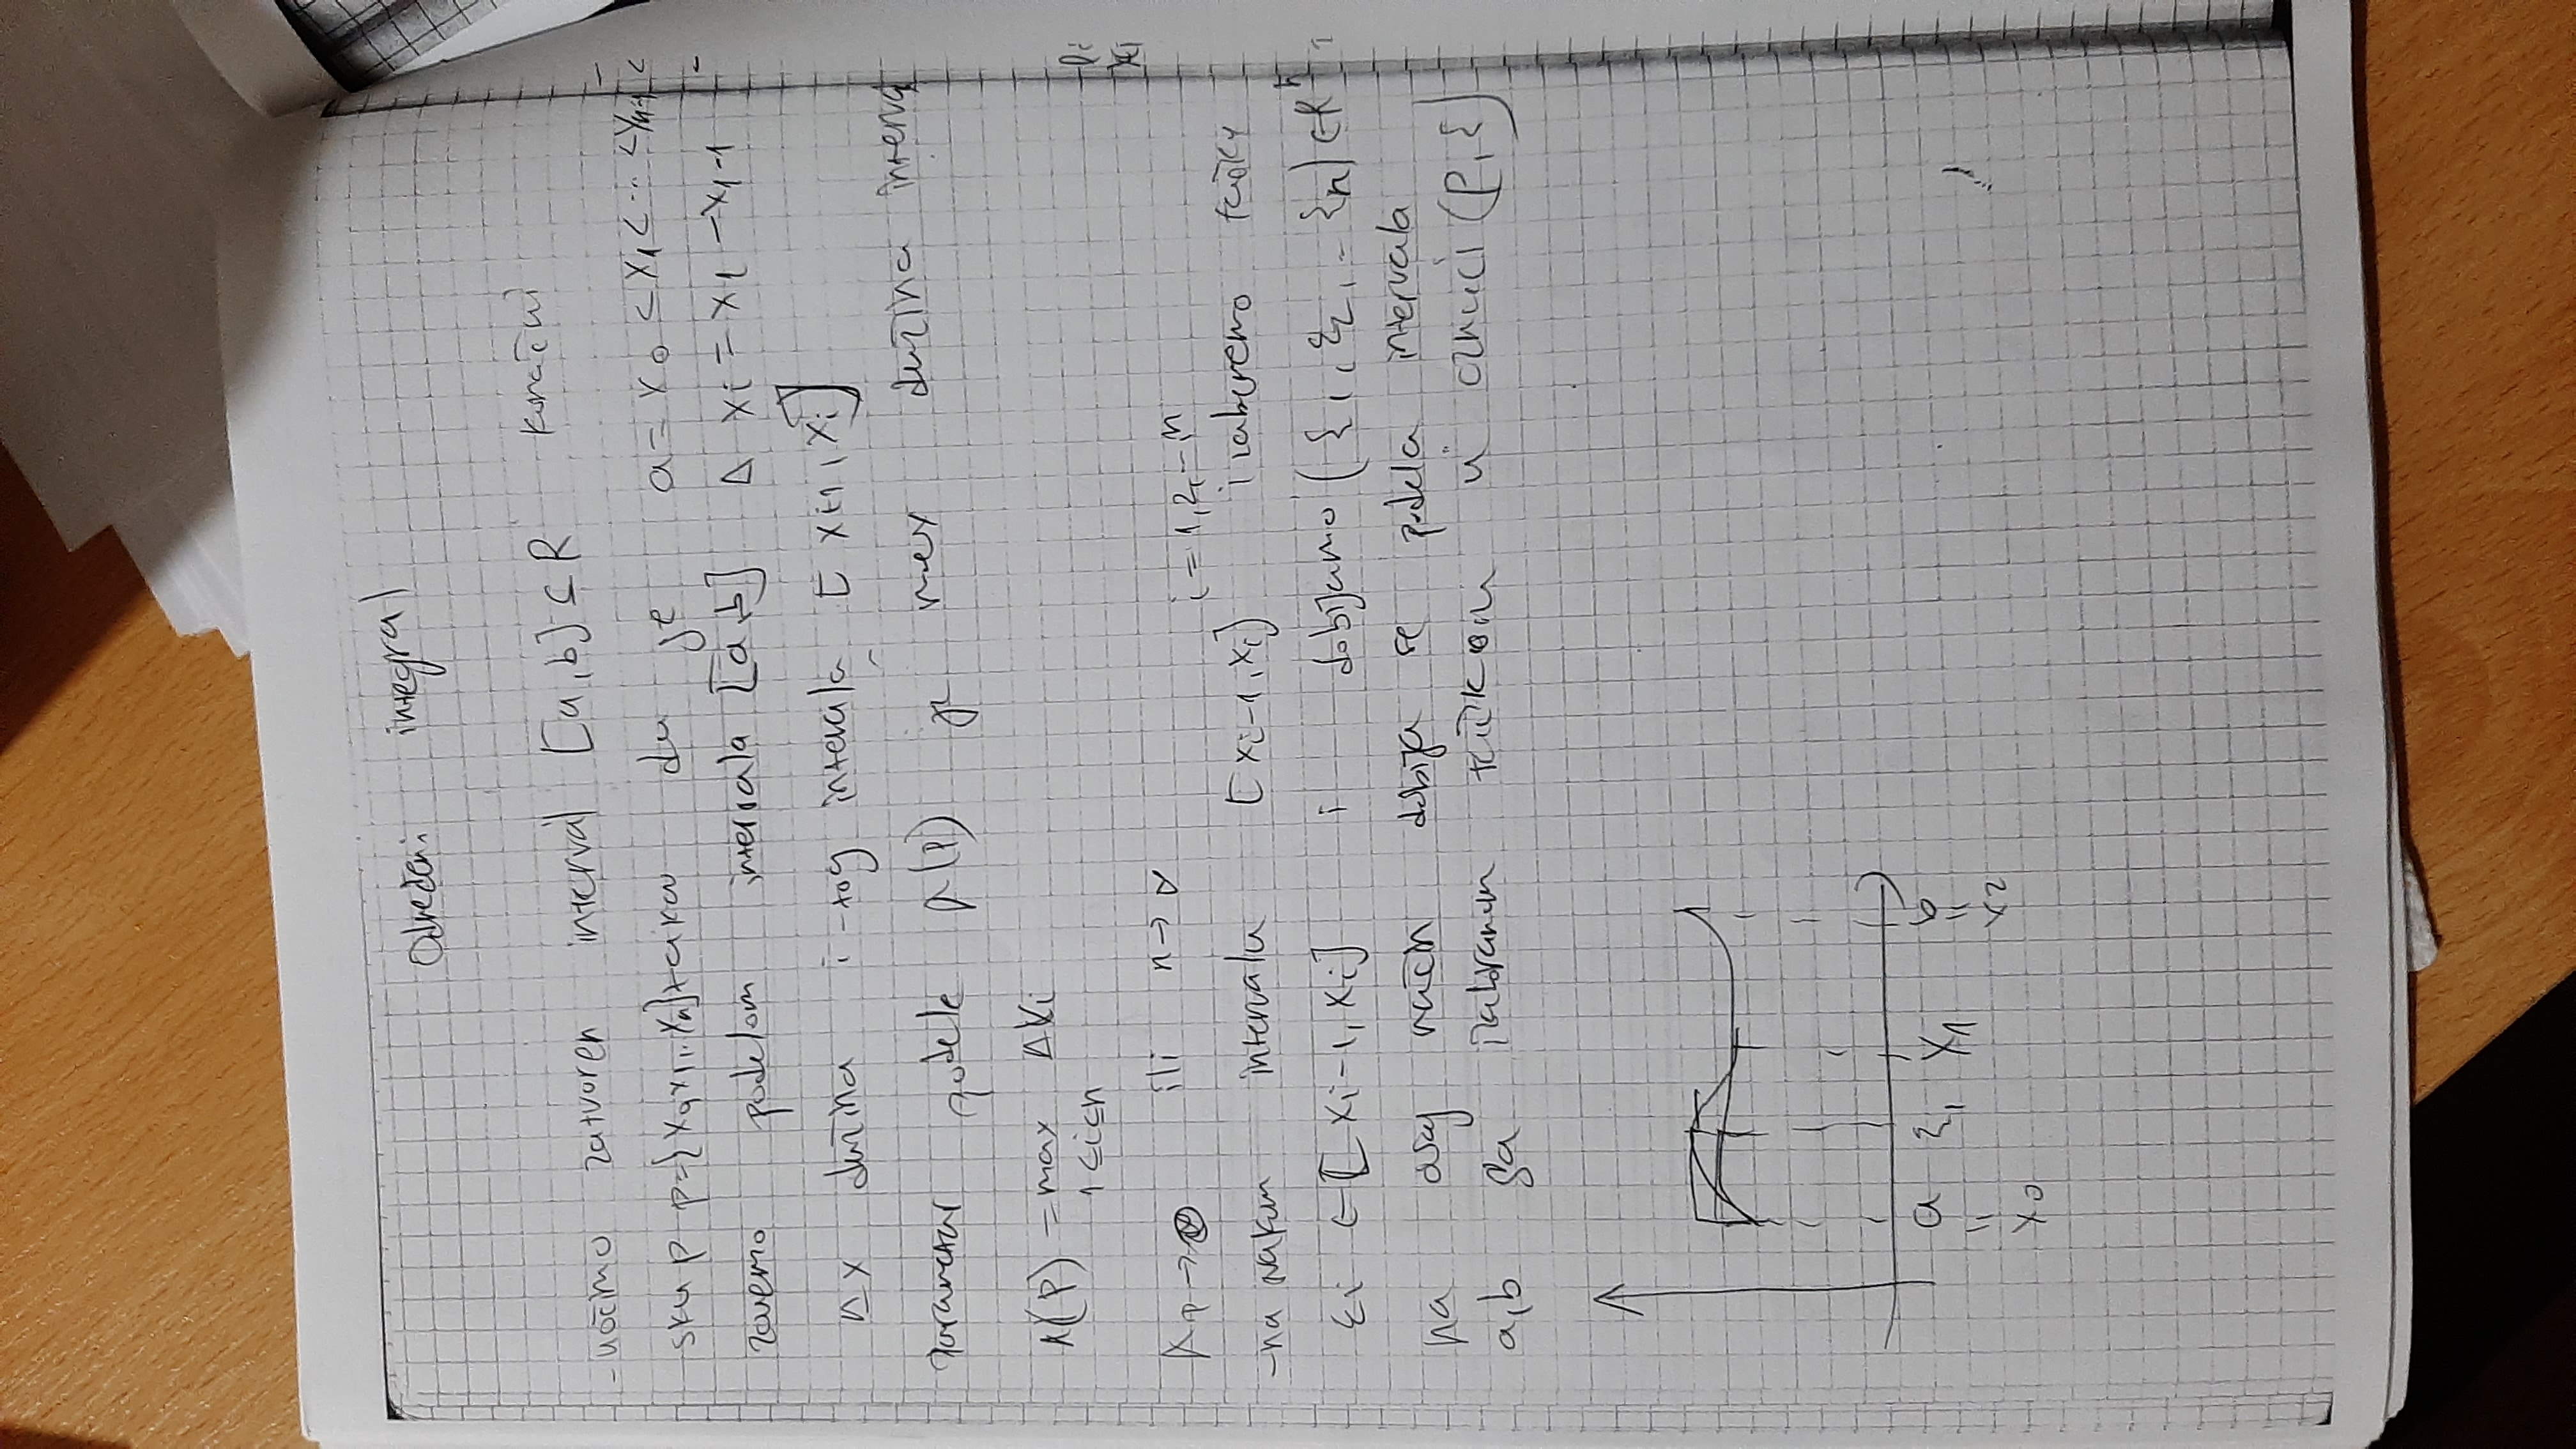 Određeni integral
- uočimo zatvoren interval [a,b] ⊆ R konačni
skup p={x0,x1,..xn} takav da je a = x0 < x1 < ... < xn-1 <
zovemo podelom intervala [a,b] Δ xi = xi - xi-1
Δx dužina i-tog intervala [xi-1, xi]
Parametar podele λ(p) je max dužina interva
λ(P) = max Δxi
1≤i≤n
λp → ili n → ∞
i = 1,2,..,n
- na svakom intervalu [xi-1, xi] izaberemo tačku
ξi ∈ [xi-1, xi] i dobijamo (ξ1, ξ2, .. ξn) ∈ R^n
na ovaj način dobija se podela intervala
a,b sa izabranom tačkom u oznaci (p, ξ)
a ξ1 x1 b
= =
x0 x2